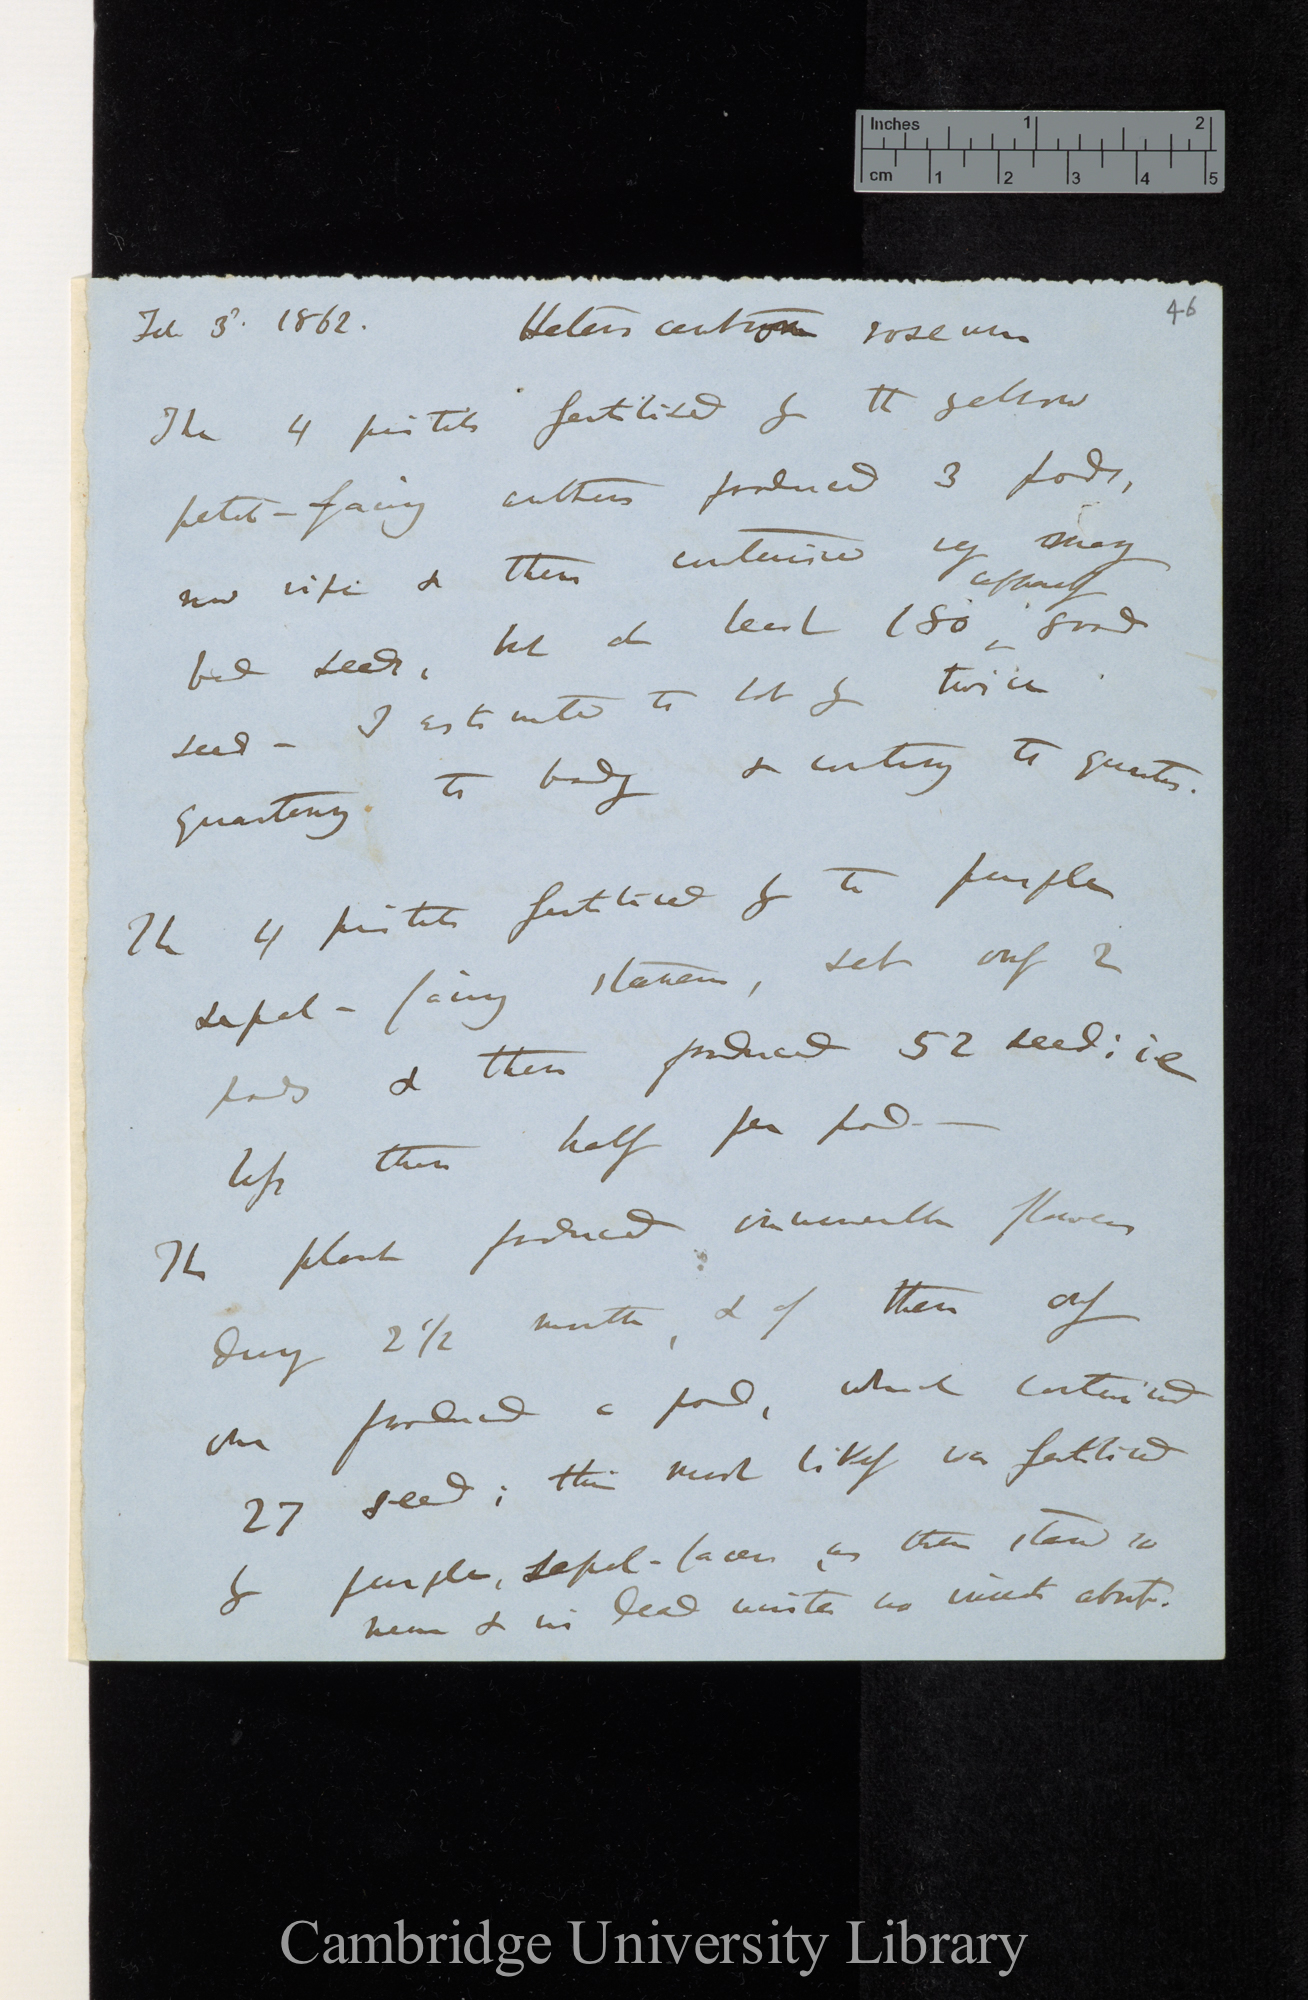 Inches 1 2
cm 1 2 3 4 5
46
Feb 3d. 1862. Heterocentron roseum
The 4 pistils fertilised by the yellow
petal-facing anthers produced 3 pods,
now ripe & these contained very many
bad seeds, but at least 180 apparently good
seed — I estimated the lot by twice
quartering the body & counting the quarter.
The 4 pistils fertilised by the purple
sepal-facing stamens, set only 2
pods & these produced 52 seed: ie
less than half per pod. —
The plant produced innumerable flowers
during 2 1/2 months, & of these only
one produced a pod, which contained
27 seed; this most likely was fertilised
by purple, sepal-facers, as these stand so
near & in dead winter no insects about.
Cambridge University Library